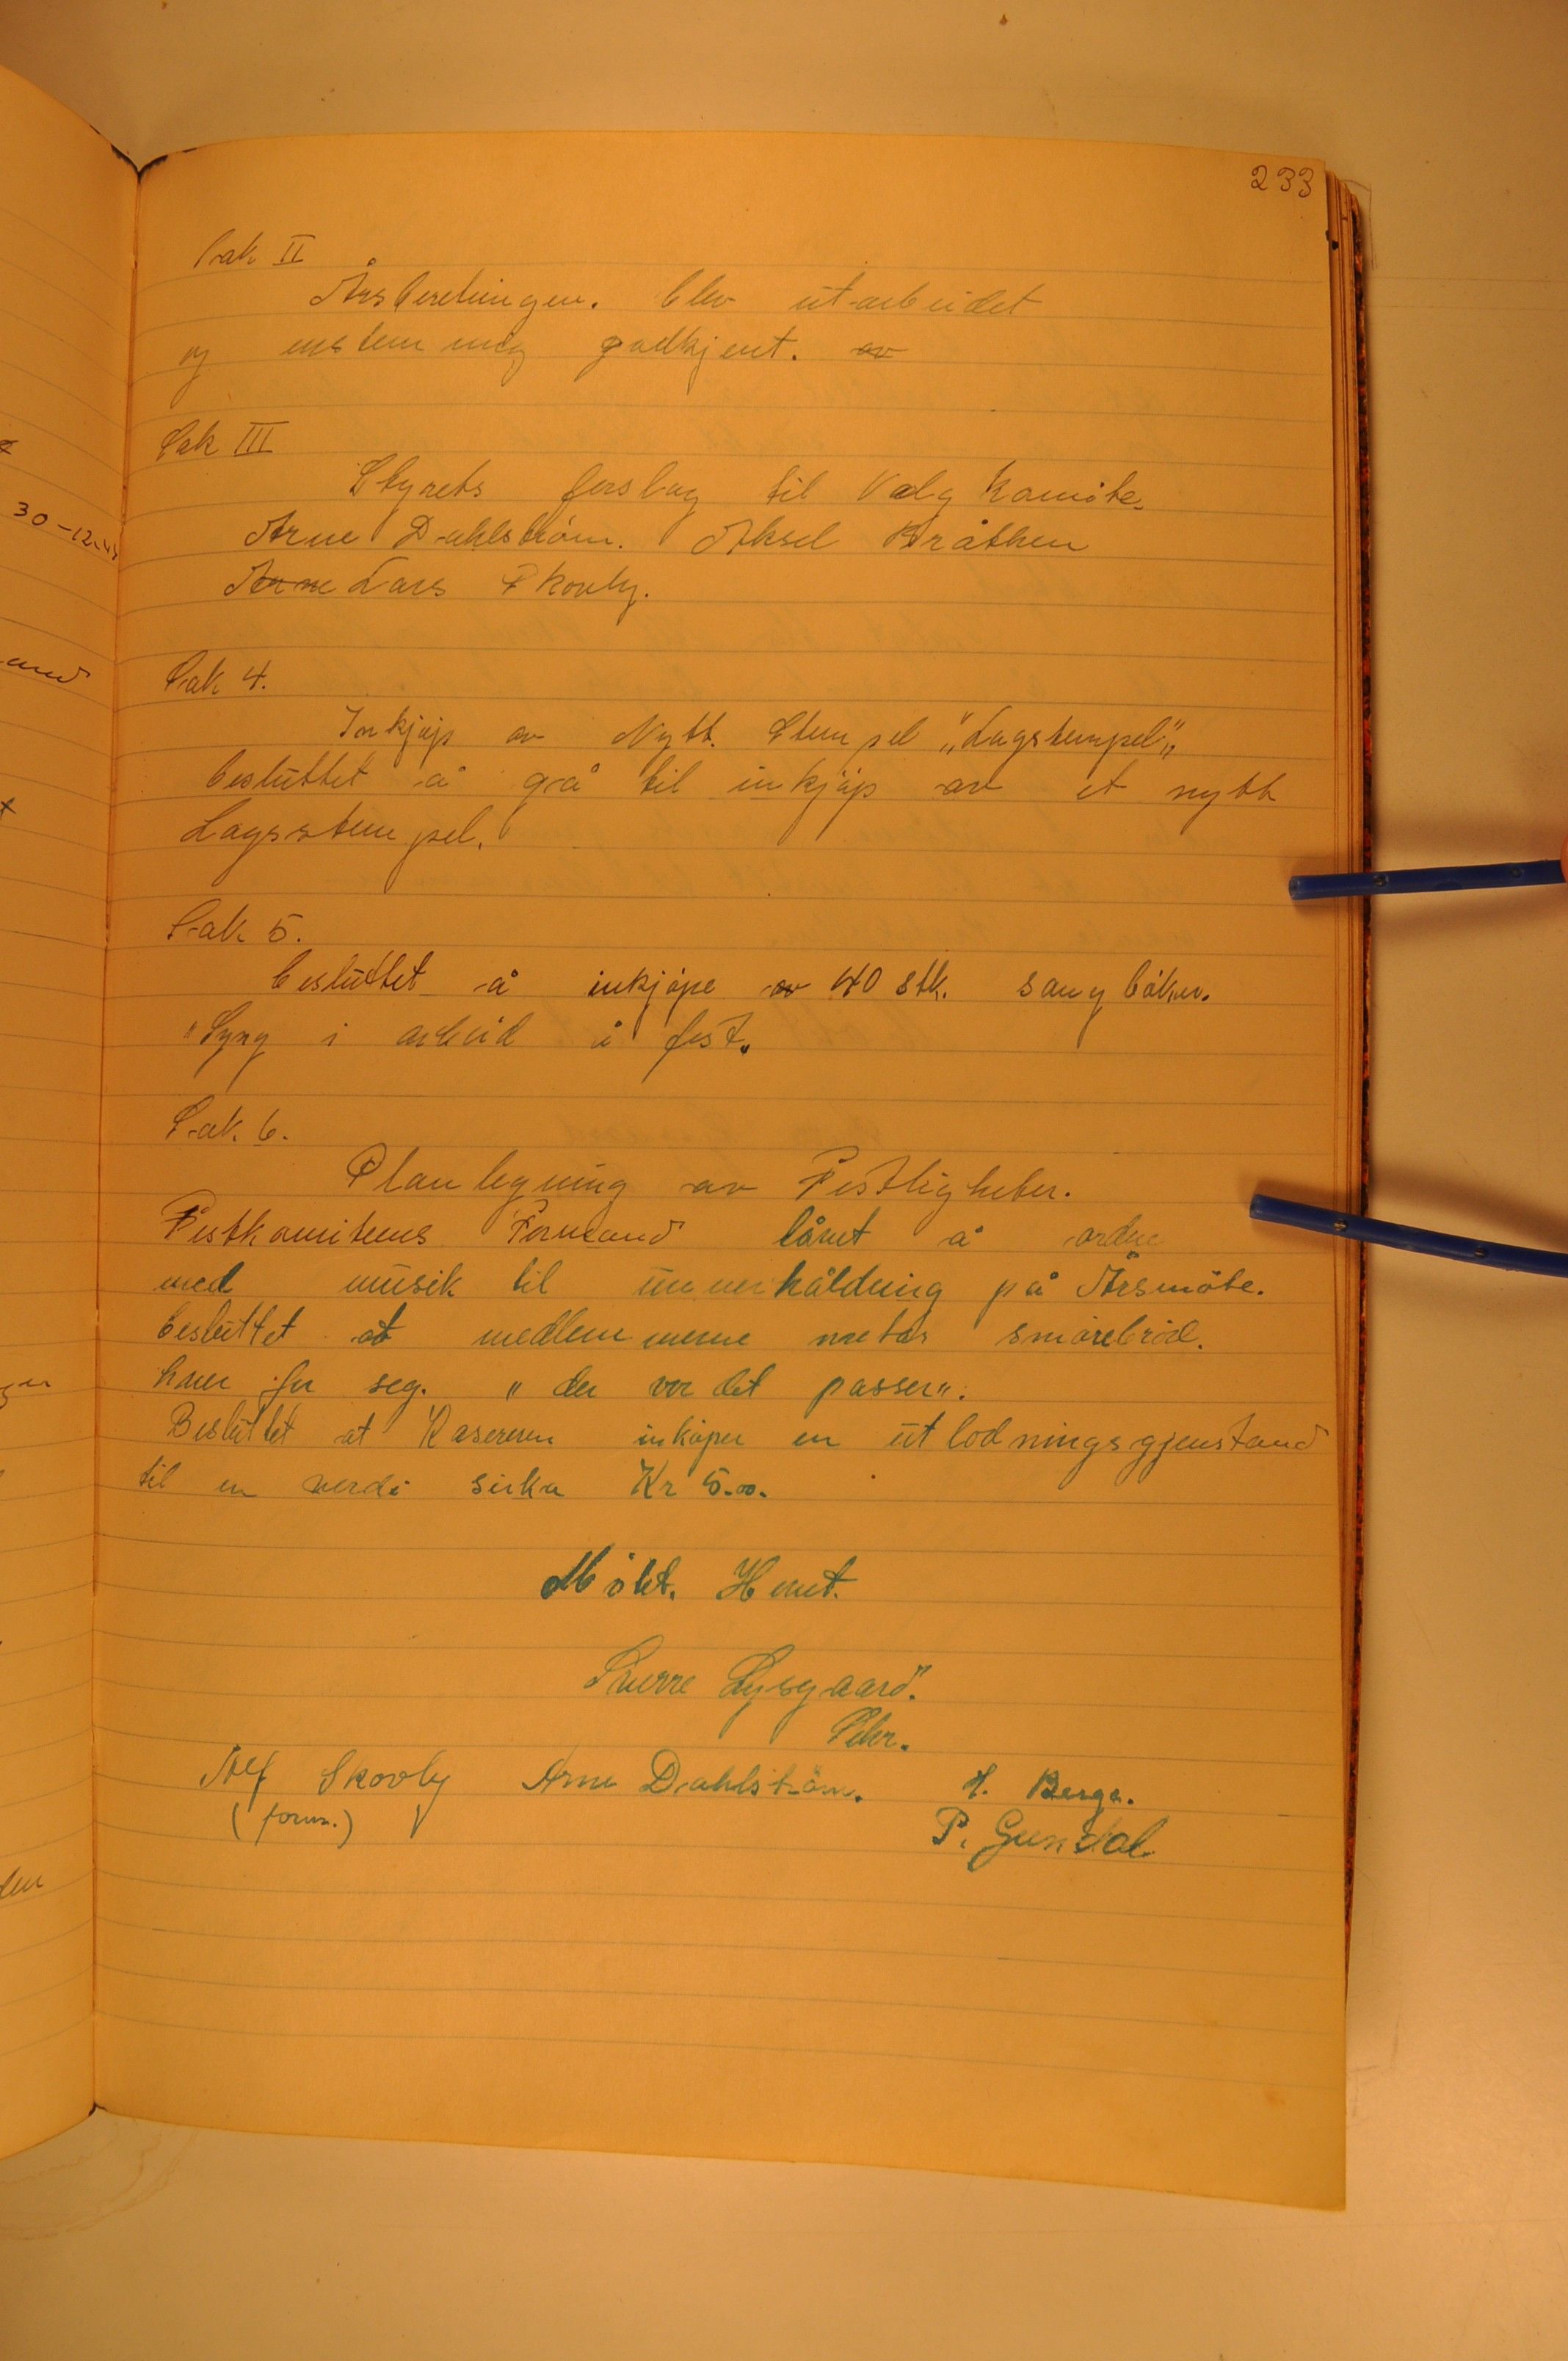 233
Sak II
Årsberetningen. blev utarbeidet
og enstemmig godkjent. av
Sak III
Styrets forslag til Valgkomite.
Arne Dahlström. Aksel Bråthen
Arne Lars Skovly.
Sak 4.
Inkjöp av Nytt. Stempel „Lagstempel„
besluttet å gå til inkjöp av et nytt
Lagsstempel.
Sak 5.
besluttet å inkjöpe av 40 stk. sangböker.
"Syng i arbeid å fest„
Sak. 6.
Planlegning av Festligheter.
Festkomitens Formand lånet å ordne
med musik til unnerhåldning på Årsmöte.
besluttet at medlemmerne metar smörebröd.
hver for seg. „ der vor det passer„.
Besluttet at Kasereren inköper en utlodningsgjenstand
til en verdi sirka Kr 5.00.
Mött. Hevet.
Sverre Lysgaard.
Sekr.
Alf Skovly Arne Dahlström. H. Berge.
(form.) P. Gundal
30-12-44